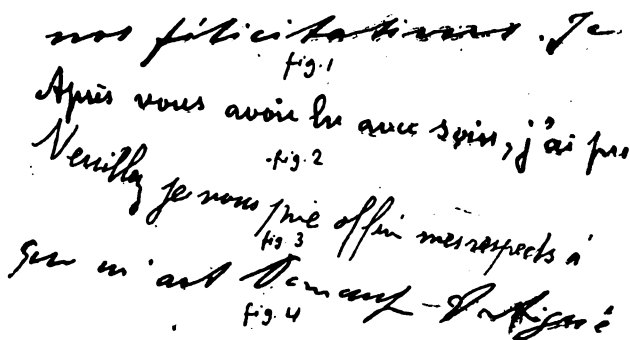 nos félicitations. Je
fig. 1
Après vous avoir lu avec soin, j'ai pu
fig. 2
Veuillez je vous prie offrir mes respects à
fig. 3
m'ont
fig. 4